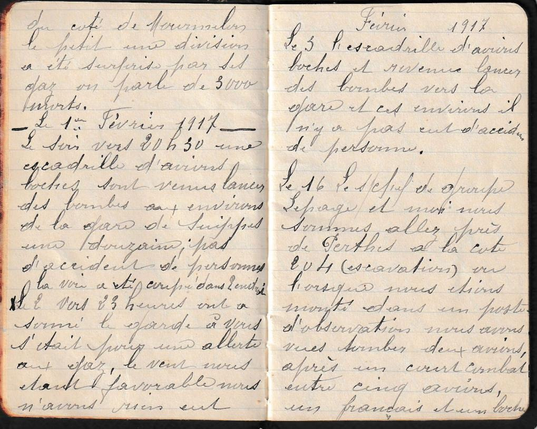 du coté de Mourmelon
le petit une division
a été surpris par ses
gaz on parle de 3000
morts.
Le 1er Février 1917
Le soir vers 20h30 une
escadrille d'avions
boches sont venus lancer
des bombes aux environs
de la gare de Suippes
une douzaine, pas
d'accident de personnes
la voie a été coupé dans 2 endroit
Le 2 vers 23 heures ont a
sonné le garde à vous
s'était pour une allerte
aux gaz, le vent nous
étant favorable nous
n'avons rien eut
Février 1917
Le 3 l'escadrille d'avions
boches et revenue lancer
des bombes vers la
gare et ces environs il
n'y a pas eut d'acciden
de personne.
Le 16 Le s/chef de groupe
Lepage et moi nous
sommes allez près
de Perthes a la cote
204 (escavation) ou
lorsque nous étions
monté dans un poste
d'observation nous avons
vues tomber deux avions,
après un court combat
entre cinq avions,
un français et un boche